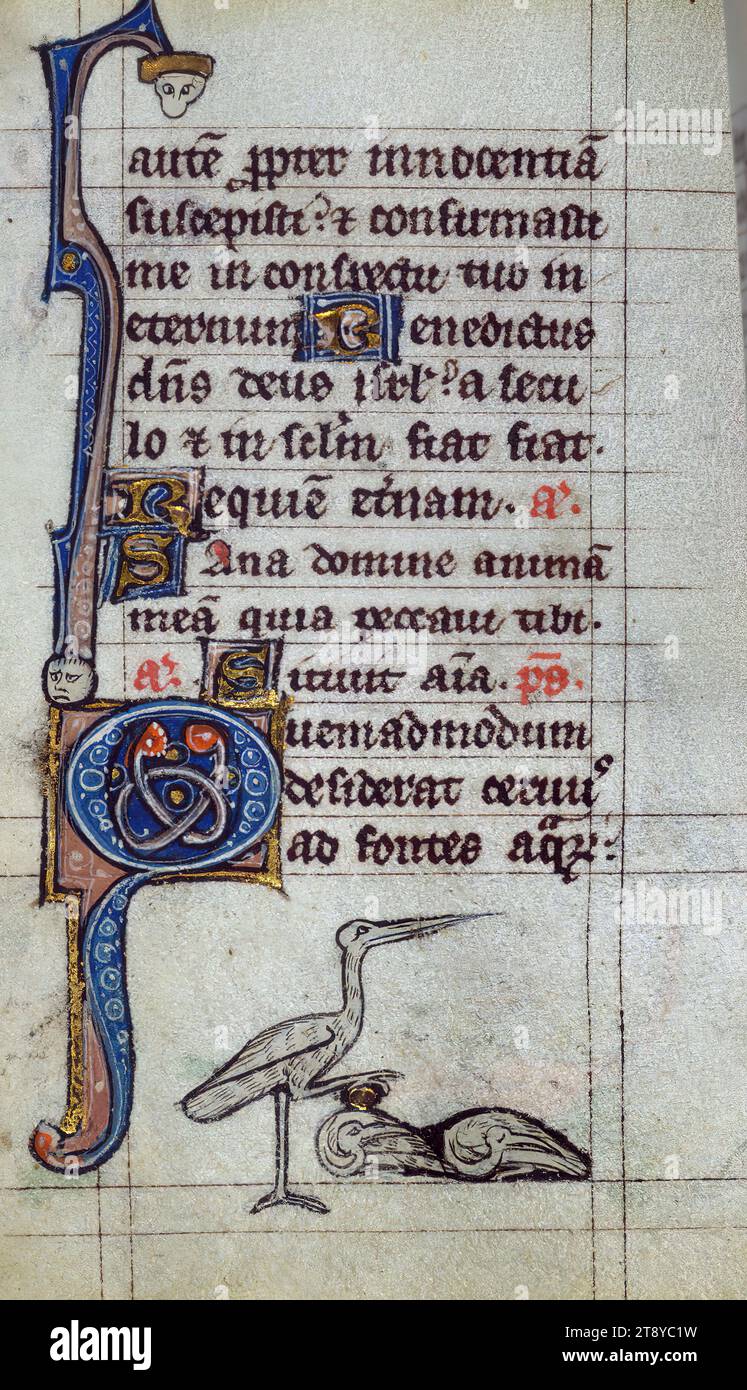 autē ꝓpter innocentiā
suscepisti? ⁊ confirmasti
me in conspectu tuo in
eternum Benedictus
dn̄s deus isrl̓? a secu
lo ⁊ in sc̄lm fiat fiat.
Requiē et̓nam. a͛.
Sana domine animā
meā quia peccaui tibi.
a͛. Sitiuit aīa. p̄s.
Quemadmodum
desiderat ceruuꝰ
ad fontes aqͣꝝ:
alamy
alamy
Image ID: 2T8YC1W
www.alamy.com